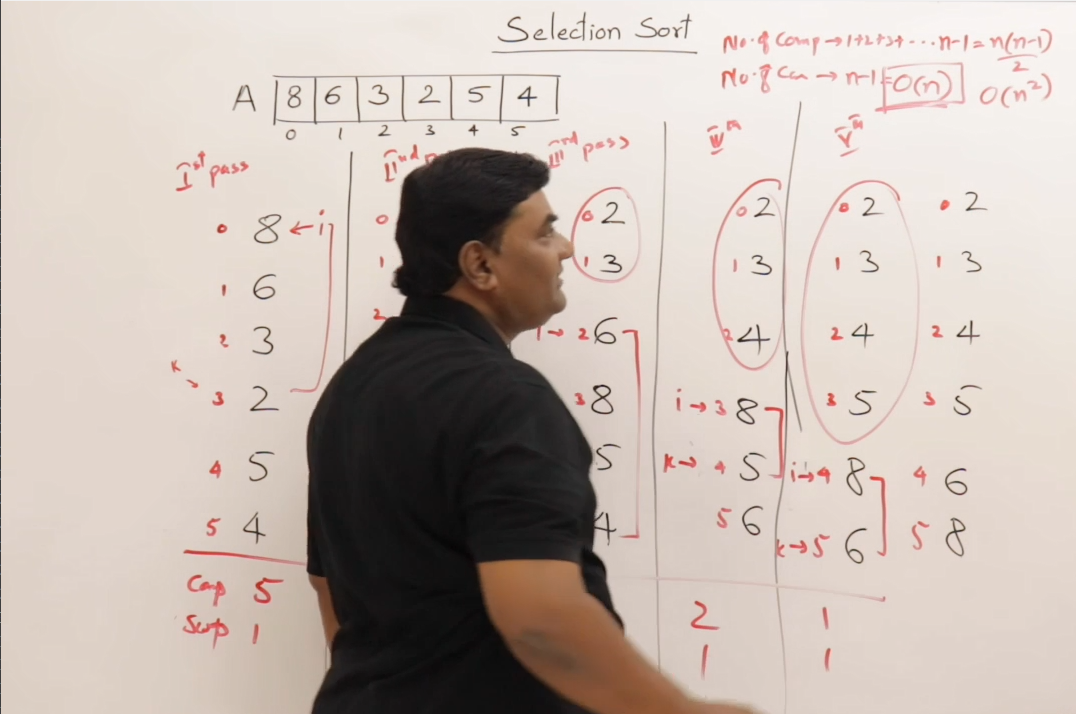 Selection Sort
No. of Comp → 1+2+3+ ... n-1 = n(n-1)/2
No. of → n-1 = O(n) O(n²)
A 8 6 3 2 5 4
0 1 2 3 4 5
Ist pass
0 8 ← i
1 6
2 3
K → 3 2
4 5
5 4
Comp 5
Swap 1
IInd
0
1
2
IIIrd pass
0 2
1 3
→ 2 6
3 8
5
4
IVth
0 2
1 3
2 4
i → 3 8
k → 4 5
5 6
2
1
Vth
0 2
1 3
2 4
3 5
i → 4 8
k → 5 6
1
1
0 2
1 3
2 4
3 5
4 6
5 8